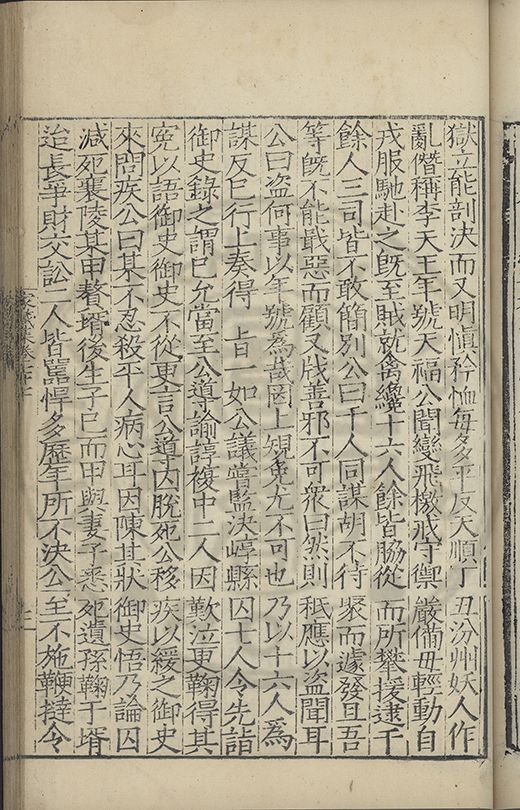 獄立能剖決而又明慎矜恤每多平反天順丁丑汾州妖人作
亂僭稱李天王年號天福公聞變飛檄戒守禦嚴備毋輕動自
戎服馳赴之既至賊就禽纔十六人餘皆脇從而所攀援逮千
餘人三司皆不敢簡別公曰千人同謀胡不待聚而遽發且吾
等既不能戢惡而顧又戕善邪不可衆曰然則秖應以盜聞耳
公曰盜何事以年號為哉罔上規免尤不可也乃以十六人為
謀反已行上奏得 旨一如公議嘗監決崞縣囚七人令先詣
御史錄之謂已允當至公導諭諄複中二人因歎泣更鞠得其
冤以語御史御史不從更言公導囚脫死公移疾以緩之御史
來問疾公曰某不忍殺平人病心耳因陳其狀御史悟乃論囚
減死襄陵某甲贅壻後生子已而甲與妻子悉死遺孫鞠于壻
迨長爭財交訟二人皆嚚悍多歷年所不決公至不施鞭撻令